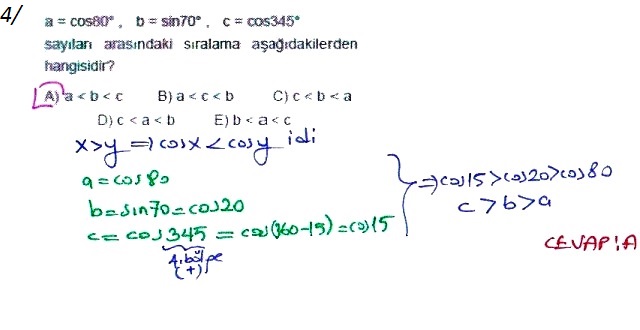 4/
a = cos80° , b = sin70° , c = cos345°
sayıları arasındaki sıralama aşağıdakilerden
hangisidir?
A) a < b < c B) a < c < b C) c < b < a
D) c < a < b E) b < a < c
x>y ⇒ cosx < cosy idi
a = cos80
b = sin70 = cos20
c = cos345 = cos(360-15) = cos15
4. bölge
(+)
⇒ cos15 > cos20 > cos80
c > b > a
CEVAP: A